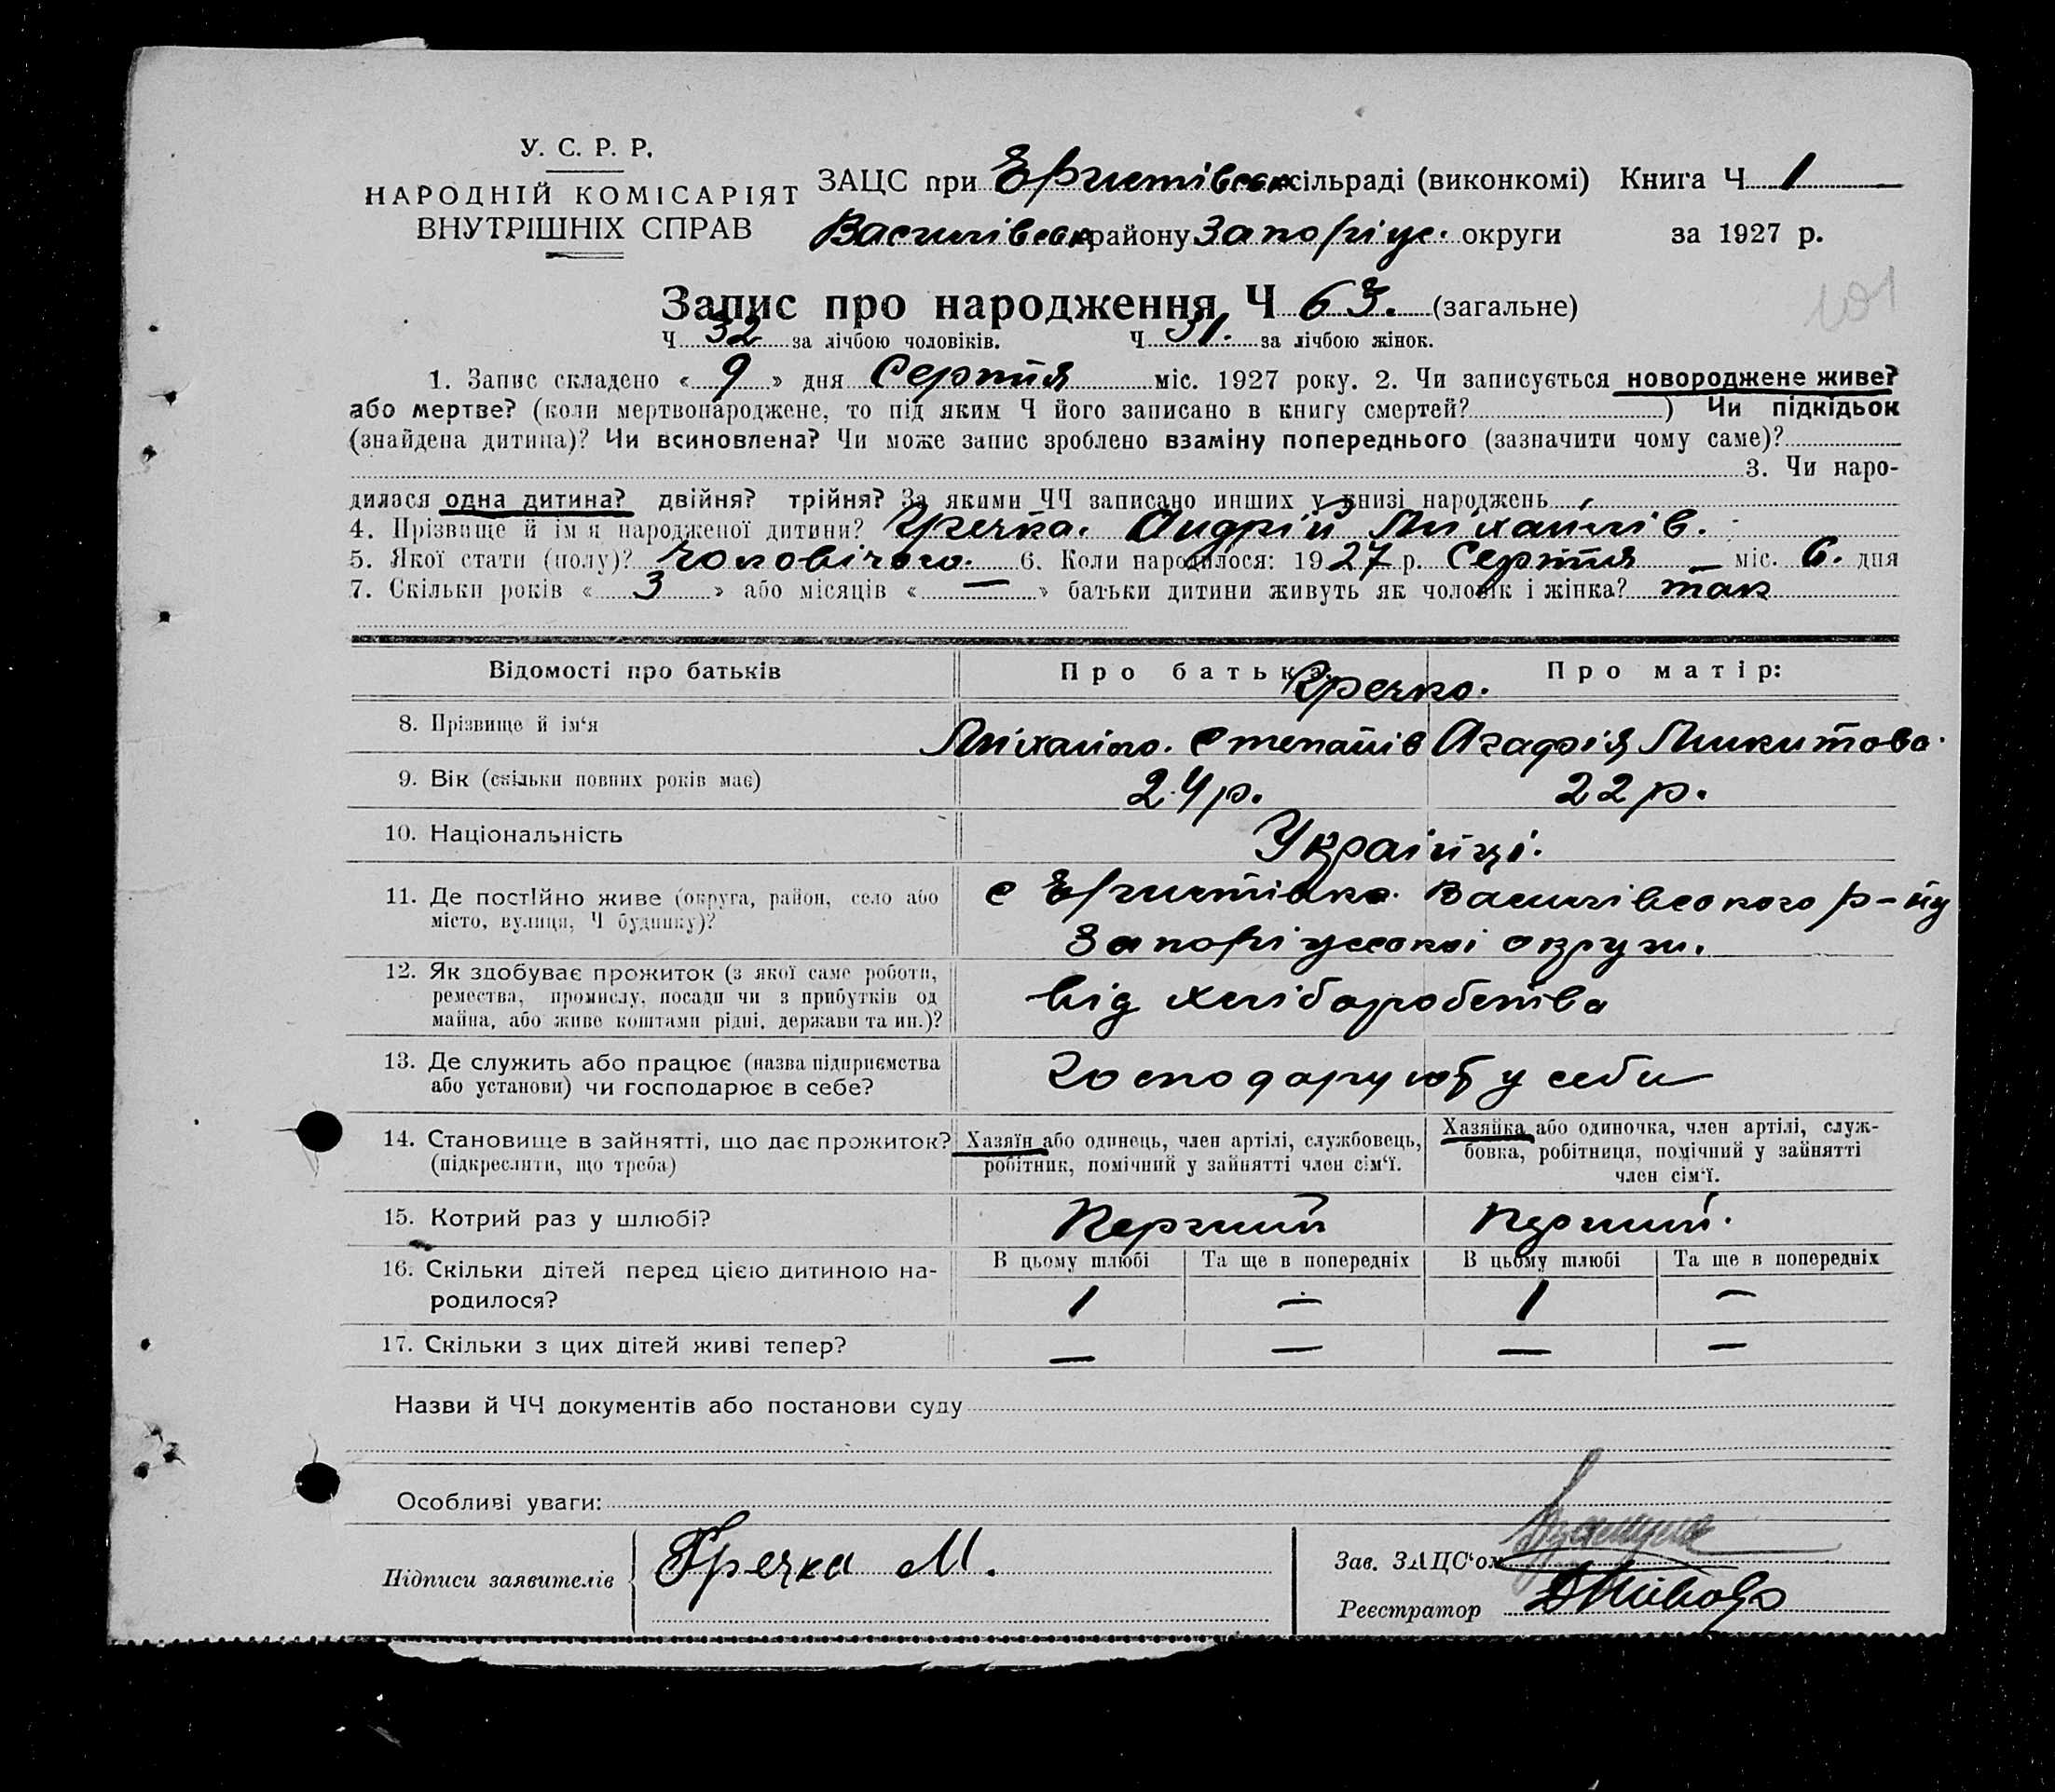 У. С. Р. Р.
НАРОДНІЙ КОМІСАРІЯТ
ВНУТРІШНІХ СПРАВ
ЗАЦС при сільраді (виконкомі) Книга Ч 1
Василівськ району Запоріць. округи за 1927 р.
Запис про народження Ч 63. (загальне)
101
Ч 32 за лічбою чоловіків. Ч 31. за лічбою жінок.
1. Запис складено « 9 » дня Серпня міс. 1927 року. 2. Чи записується новороджене живе?
або мертве? (коли мертвонароджене, то під яким Ч його записано в книгу смертей? ) Чи підкідьок
(знайдена дитина)? Чи всиновлена? Чи може запис зроблено взаміну попереднього (зазначити чому саме)?
3. Чи наро-
дилася одна дитина? двійня? трійня? За якими ЧЧ записано инших у книзі народжень
4. Прізвище й ім'я народженої дитини? Гречка. Андрій Міхайлів.
5. Якої стати (полу)? чоловічого. 6. Коли народилося: 1927 р. Серпня міс. 6. дня
7. Скільки років « 3 » або місяців « — » батьки дитини живуть як чоловік і жінка? так
Відомості про батьків Про батька Про матір:
Гречко.
8. Прізвище й ім'я Міхайло. Степанів Агафія Микитова.
9. Вік (скільки повних років має) 24 р. 22 р.
10. Національність Українці.
11. Де постійно живе (округа, район, село або
місто, вулиця, Ч будинку)?
с Василівського р-ну
Запоріцької округи.
12. Як здобуває прожиток (з якої саме роботи,
ремества, промислу, посади чи з прибутків од
майна, або живе коштами рідні, держави та ин.)?
від хліборобства
13. Де служить або працює (назва підприємства
або установи) чи господарює в себе?
господарують у себи
14. Становище в зайнятті, що дає прожиток?
(підкреслити, що треба)
Хазяїн або одинець, член артілі, службовець,
робітник, помічний у зайнятті член сім'ї.
Хазяйка або одиночка, член артілі, служ-
бовка, робітниця, помічний у зайнятті
член сім'ї.
15. Котрий раз у шлюбі? Перший Перший.
16. Скільки дітей перед цією дитиною на-
родилося?
В цьому шлюбі Та ще в попередніх В цьому шлюбі Та ще в попередніх
1 — 1 —
17. Скільки з цих дітей живі тепер? — — — —
Назви й ЧЧ документів або постанови суду
Особливі уваги:
Підписи заявителів Гречка М.
Зав. ЗАЦС'ом
Реєстратор